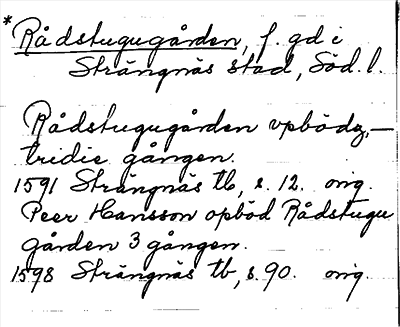 * Rådstugugården, f. gd i
Strängnäs stad, Söd. l.
Rådstugugården vpbödz,—
tridie gången.
1591 Strängnäs tb, s. 12. orig.
Peer Hansson opböd Rådstugu
gården 3 gången.
1598 Strängnäs tb, s. 90. orig.